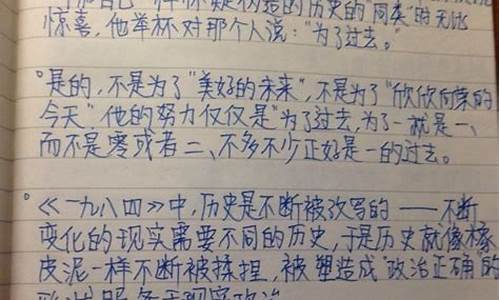 一样怀疑伪造的历史的“同类”时无比
惊喜，他举杯对那个人说：“为了过去。”
°是的，不是为了“美好的未来”，不是为了“欣欣向荣的
今天”，他的努力仅仅是“为了过去，为了一就是一、
而不是零或者二、不多不少正好是一的过去。
°《一九八四》中，历史是不断被改写的——不断
变化的现实需要不同的历史，于是历史就像橡
皮泥一样不断被揉捏，被塑造成“政治正确”的